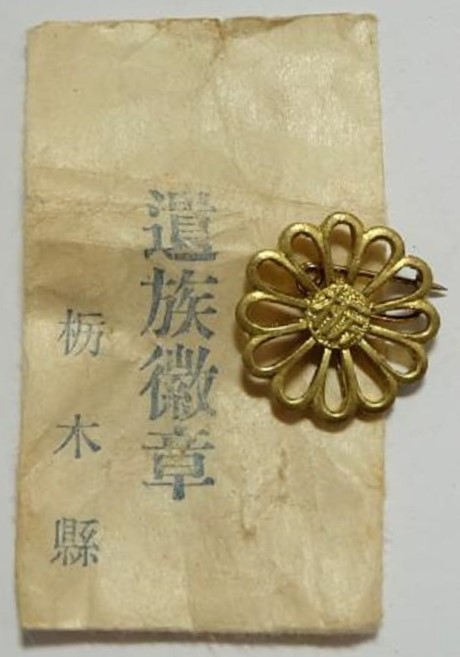 遺族徽章
栃木縣